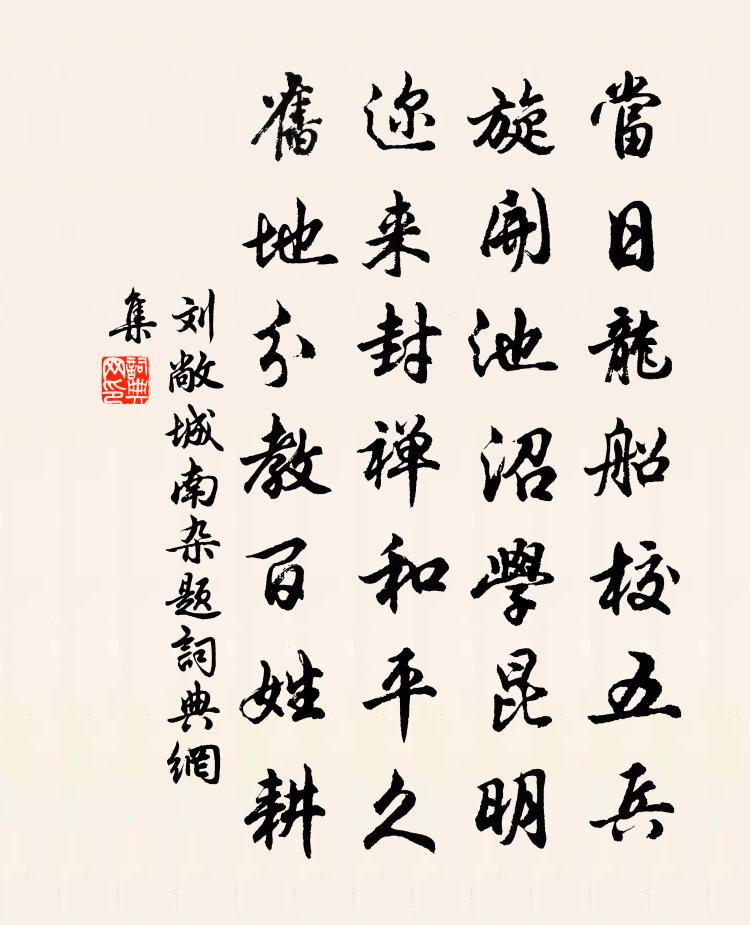 當日龍船校五兵
旋開池沼學昆明
迩来封禅和平久
舊地分教百姓耕
刘敞城南杂题詞典網
集
詞典
网印